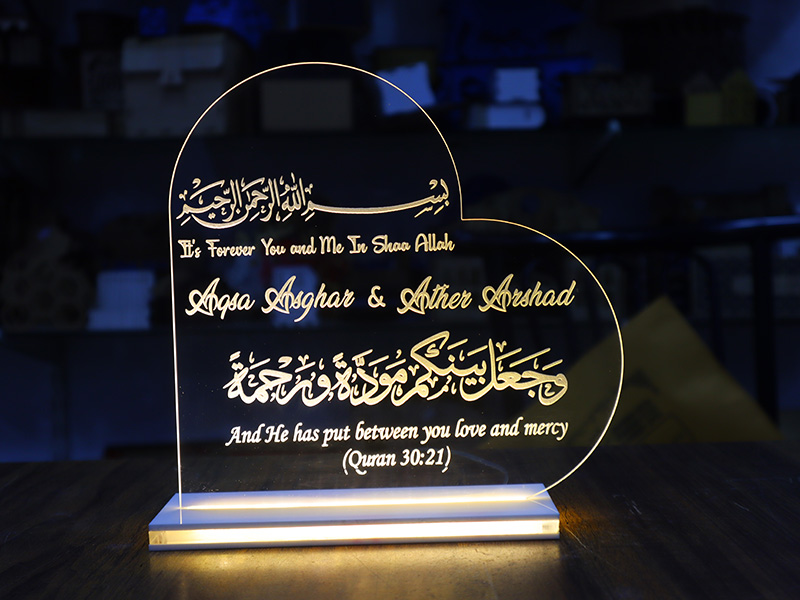 بِسْمِ اللهِ الرَّحْمٰنِ الرَّحِيْمِ
It's Forever You and Me In Shaa Allah
Aqsa Asghar & Ather Arshad
وَجَعَلَ بَيْنَكُم مَّوَدَّةً وَرَحْمَةً
And He has put between you love and mercy
(Quran 30:21)